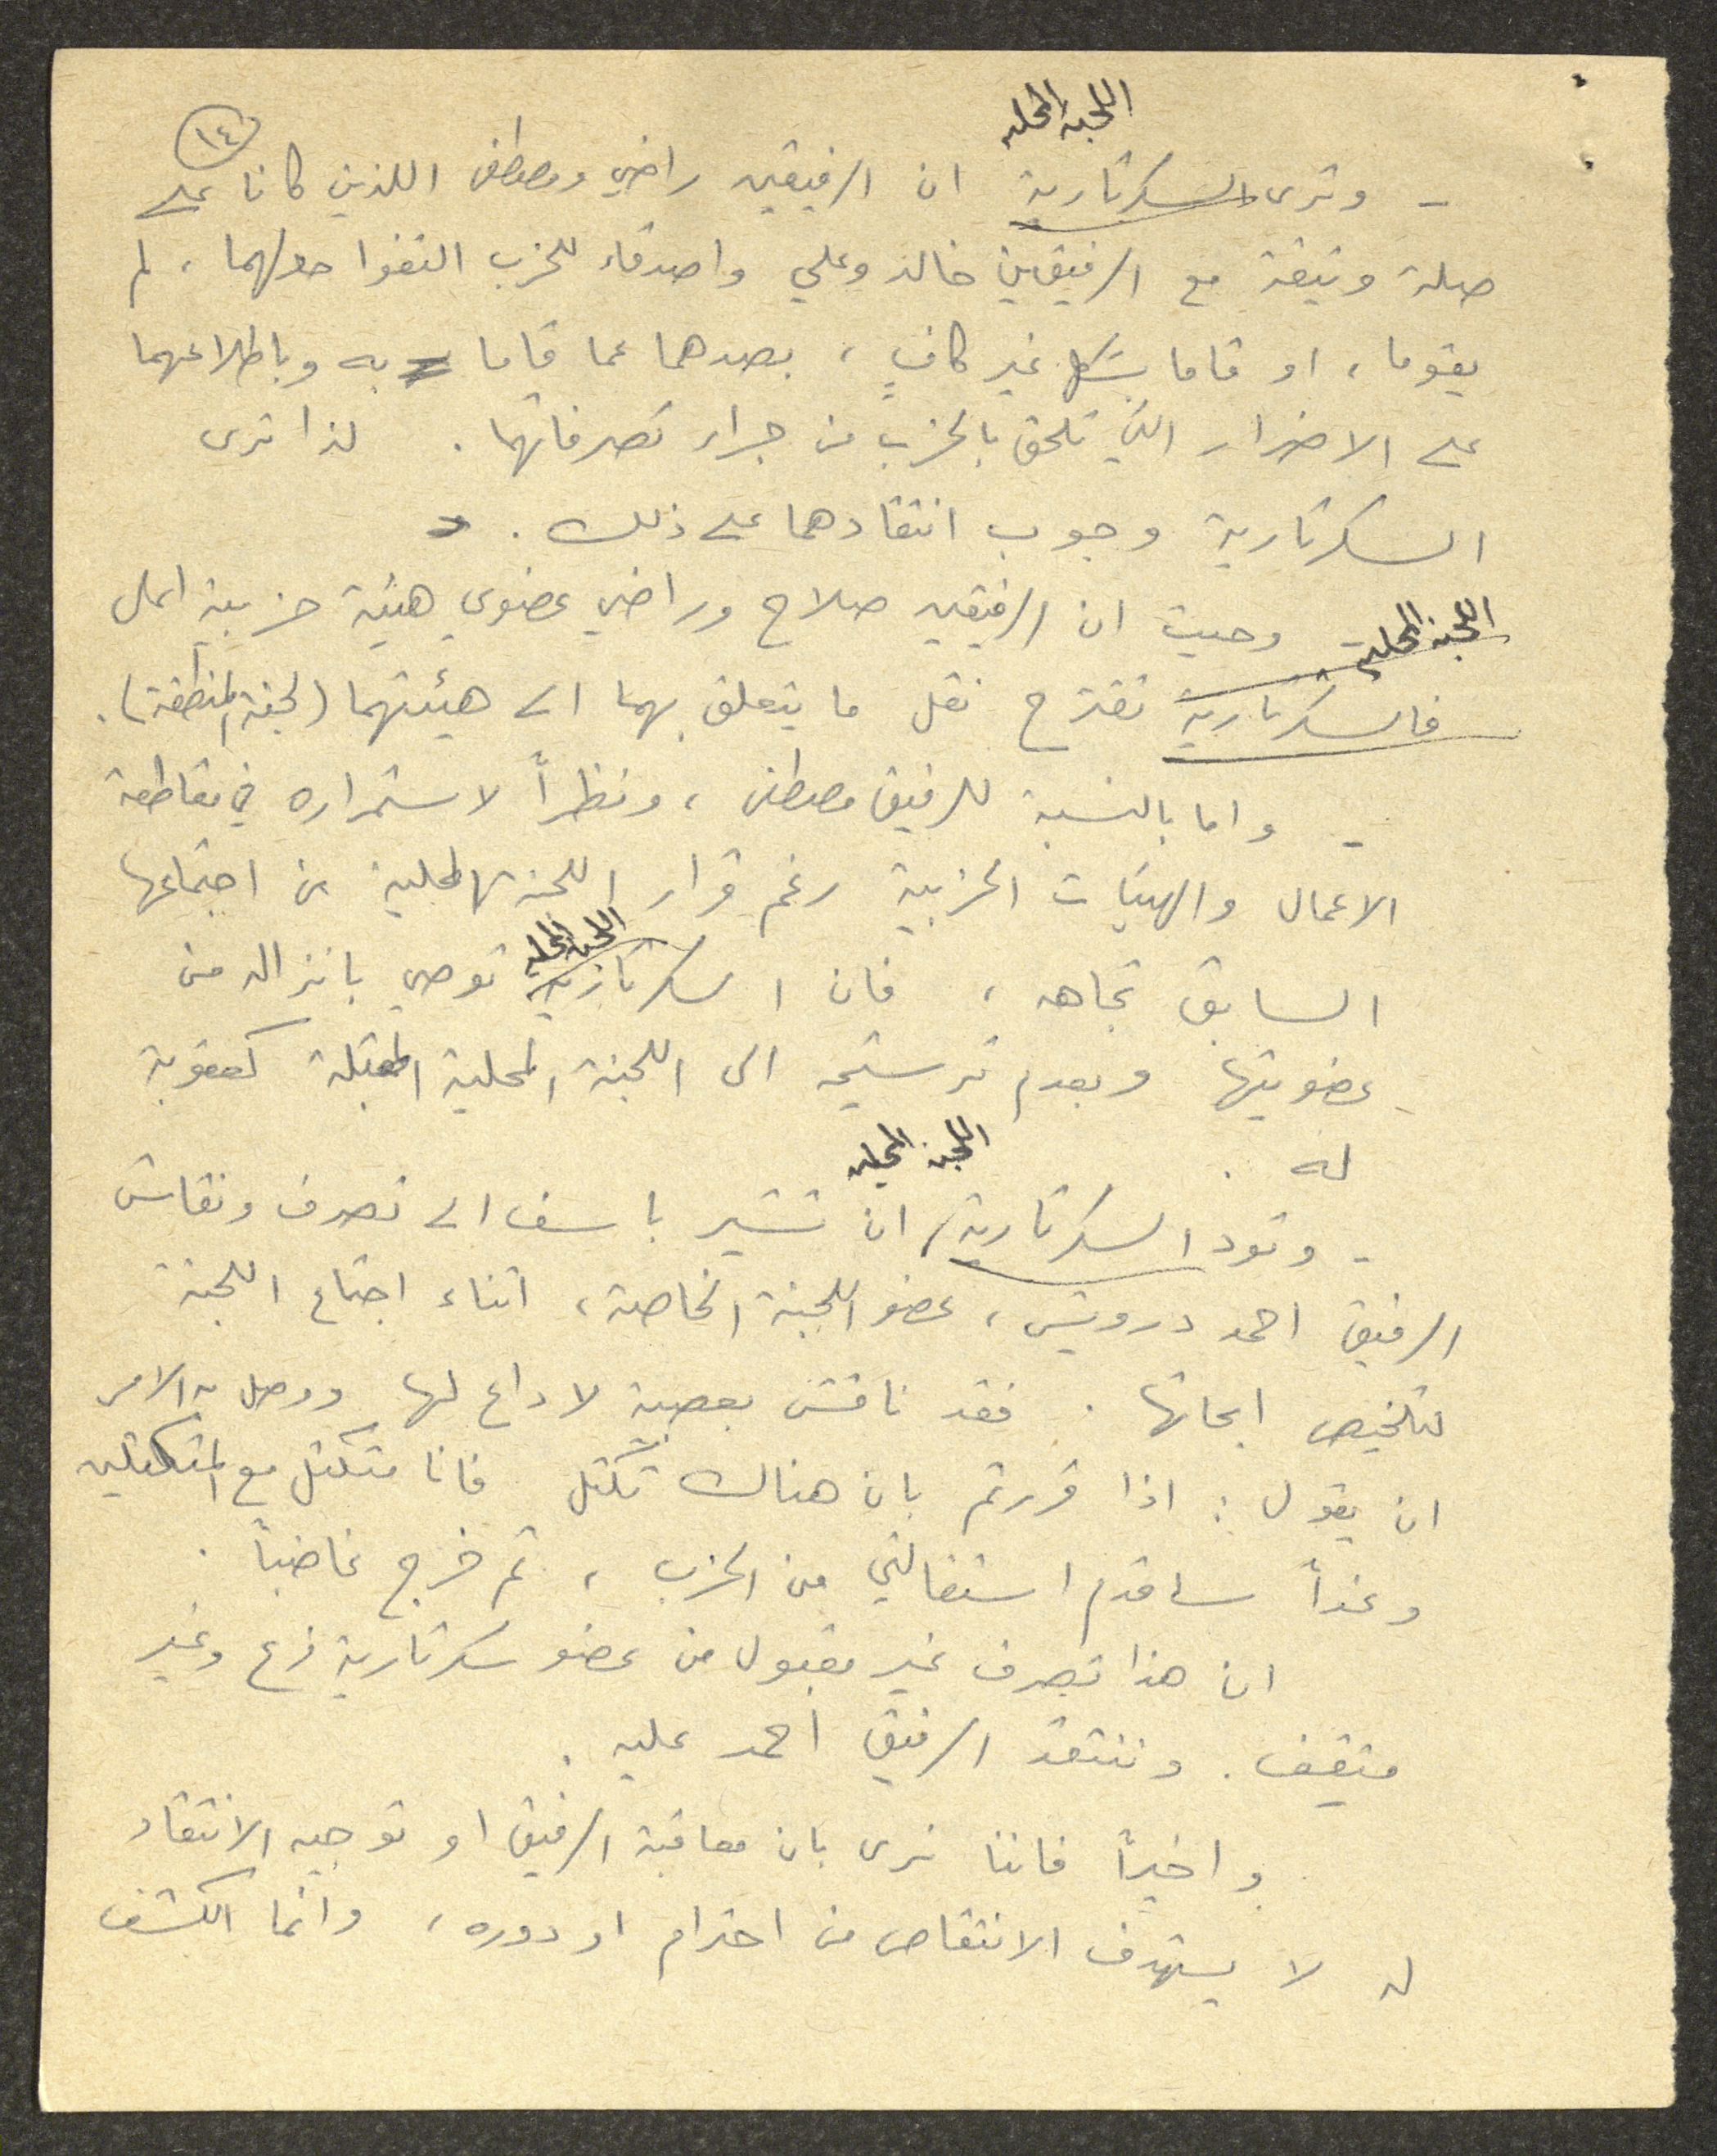 ١٤
اللجنة المحلية
- وترى السكرتارية ان الرفيقين راضي ومصطفى اللذين كانا على
صلة وثيقة مع الرفيقين خالد وعلي واصدقاء للحزب التفوا حولهما ، لم
يقوما ، او قاما بشكل غير كافٍ ، بصدهما عما قاما به وباطلاعهما
على الاضرار التي تلحق بالحزب من جراء تصرفاتهما . لذا ترى
السكرتارية وجوب انتقادهما على ذلك .
وحيث ان الرفيقين صلاح وراضي عضوي هيئة حزبية اعلى
اللجنة المحلية
فالسكرتارية تقترح نقل ما يتعلق بهما الى هيئتهما (لجنة المنطقة) .
- واما بالنسبة للرفيق مصطفى ، ونظراً لاستمراره في مقاطعة
الاعمال والهيئات الحزبية رغم قرار اللجنة المحلية في اجتماعها
اللجنة المحلية
السابق تجاهه ، فان السكرتارية توصي بانزاله من
عضويتها وبعدم ترشيحه الى اللجنة المحلية المقبلة كعقوبة
له .
اللجنة المحلية
- وتود السكرتارية ان تشير باسف الى تصرف ونقاش
الرفيق احمد درويش ، عضو اللجنة الخاصة ، اثناء اجتماع اللجنة
لتلخيص ابحاثها . فقد ناقش بعصبية لا داع لها ووصل به الامر
ان يقول : اذا قررتم بان هناك تكتل فانا متكتل مع المتكتلين
وغداً ساقدم استقالتي من الحزب ، ثم خرج غاضباً .
ان هذا تصرف غير مقبول من عضو سكرتارية فرع وغير
مثقف . وننتقد الرفيق احمد عليه .
واخيراً فاننا نرى بان معاقبة الرفيق او توجيه الانتقاد
له لا يستهدف الانتقاص من احترام او دوره ، وانما الكشف